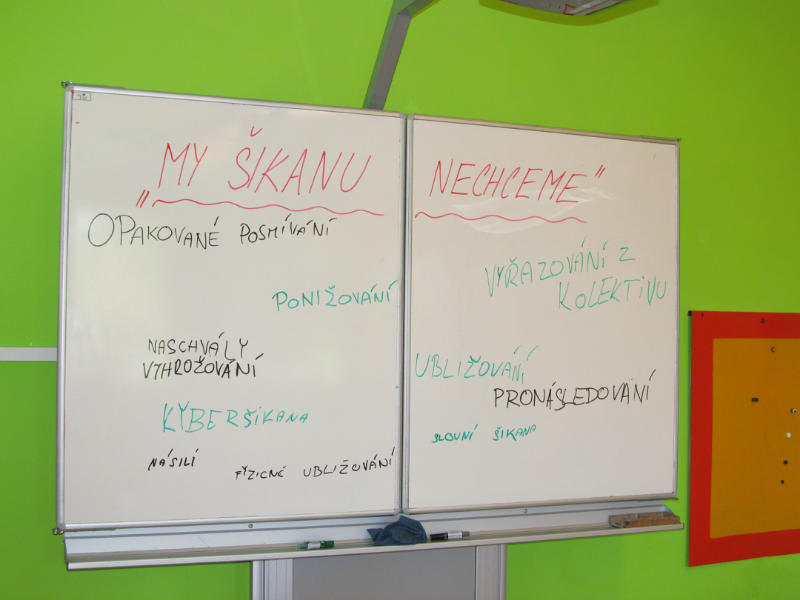 „MY ŠIKANU NECHCEME"
OPAKOVANÉ POSMÍVÁNÍ
PONIŽOVÁNÍ
NASCHVÁLY
VYHROŽOVÁNÍ
KYBERŠIKANA
NÁSILÍ
FYZICKÉ UBLIŽOVÁNÍ
VYŘAZOVÁNÍ Z
KOLEKTIVU
UBLIŽOVÁNÍ
PRONÁSLEDOVÁNÍ
SLOVNÍ ŠIKANA